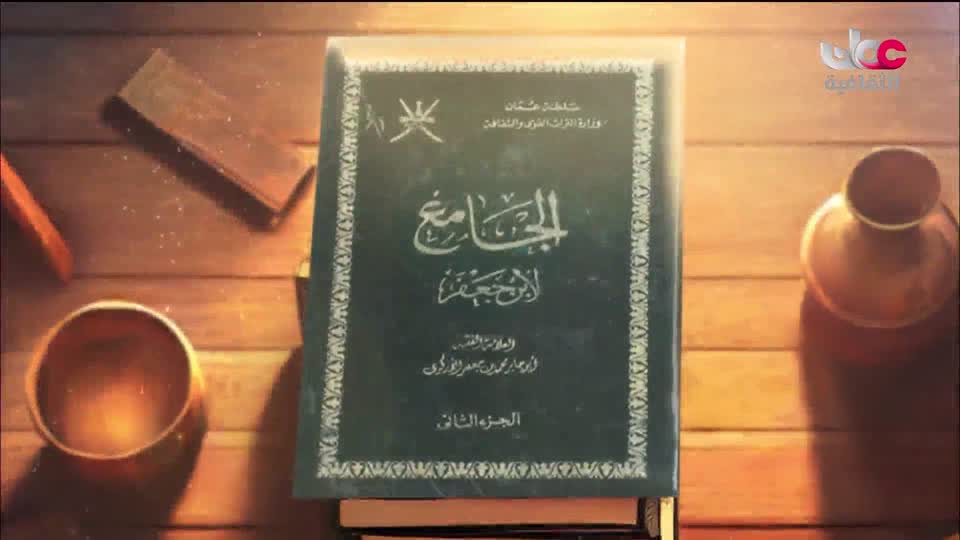 عمان
الثقافية
سلطنة عُمان
وزارة التراث القومي والثقافة
الجامع
لابن جعفر
العلامة الفقيه
أبو جابر محمد بن جعفر الأزكوي
الجزء الثاني